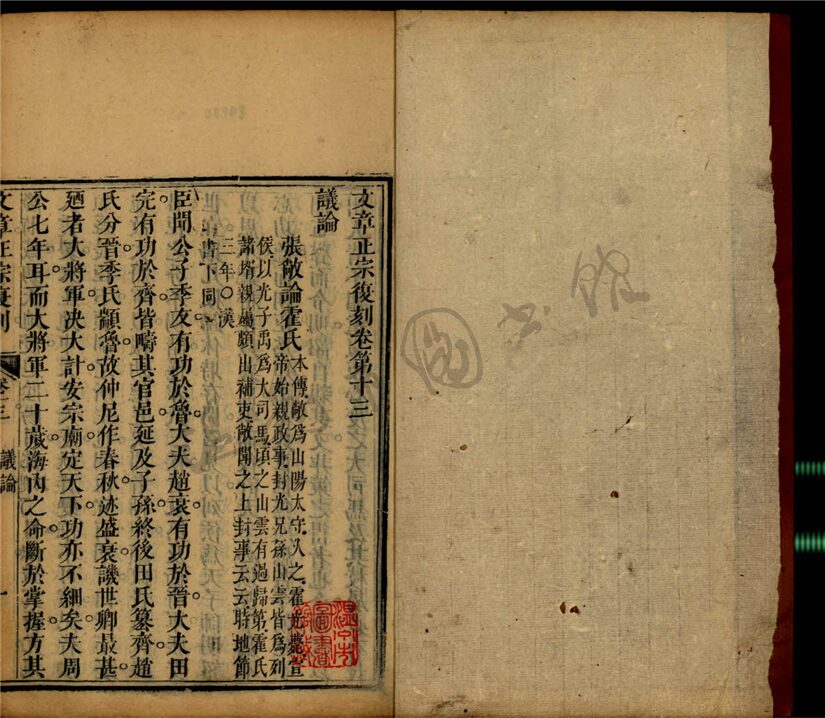 文章正宗復刻卷第十三
議論
張敞論霍氏
本傳敞爲山陽太守久之霍光薨宣
帝始親政事封光兄孫山雲皆爲列
侯以光子禹爲大司馬頃之山雲有過歸第霍氏
諸壻親屬頗出補吏敞聞之上封事云云時地節
三年○漢
書下同
臣聞公子季友有功於魯大夫趙衰有功於晉大夫田
完有功於齊皆疇其官邑延及子孫終後田氏篡齊趙
氏分晉季氏顓魯故仲尼作春秋迹盛衰譏世卿最甚
廼者大將軍决大計安宗廟定天下功亦不細矣夫周
公七年耳而大將軍二十歲海內之命斷於掌握方其
文章正宗復刻 卷十三 議論 一
溫州市
圖書
館藏